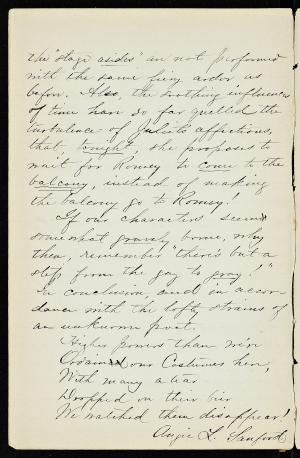 the "stage asides" are not performed
with the same fiery ardor as
before. Also, the soothing influences
of time have so far quelled the
turbulence of Juliet's affections,
that, tonight, she proposes to
wait for Romeo to come to the
balcony, instead of making
the balcony go to Romeo!
If our characters seem
somewhat gravely borne, why
then, remember "there's but a
step from the gay to gray!"
In conclusion, and in accor
dance with the lofty strains of
an unknown poet.
Higher powers than we'r
Ordain our Costumes here,
With many a tear
Dropped on their bier
We watched them disappear!
Angie L. Sanford